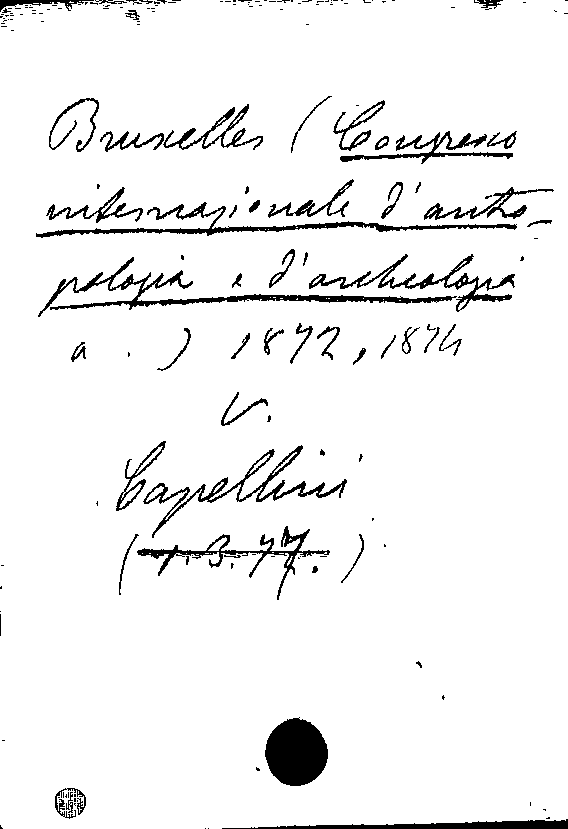 Bruxelles (Congresso
internazionale d'antro-
pologia e d'archeologia
a . ) 1872, 1874
V.
Capellini
(1.3.77.)